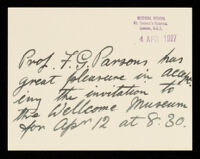 MEDICAL SCHOOL
St. Thomas's Hospital
London, S.E.1.
4 APR 1927
Prof. F. G. Parsons has
great pleasure in accept
ing the invitation to
the Wellcome Museum
for Apr 12 at 8.30.